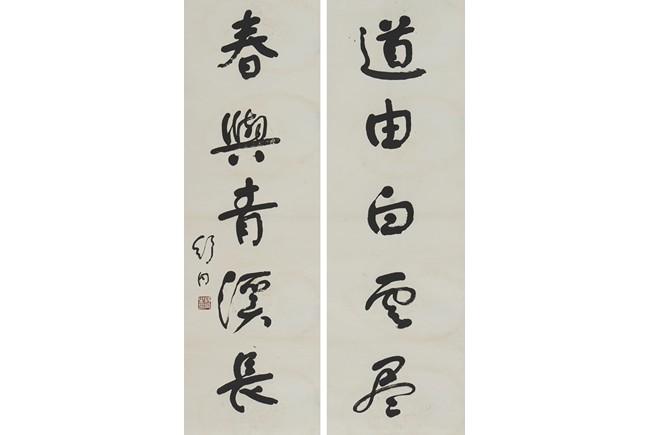 道由白雲盡
春與青溪長
舒同